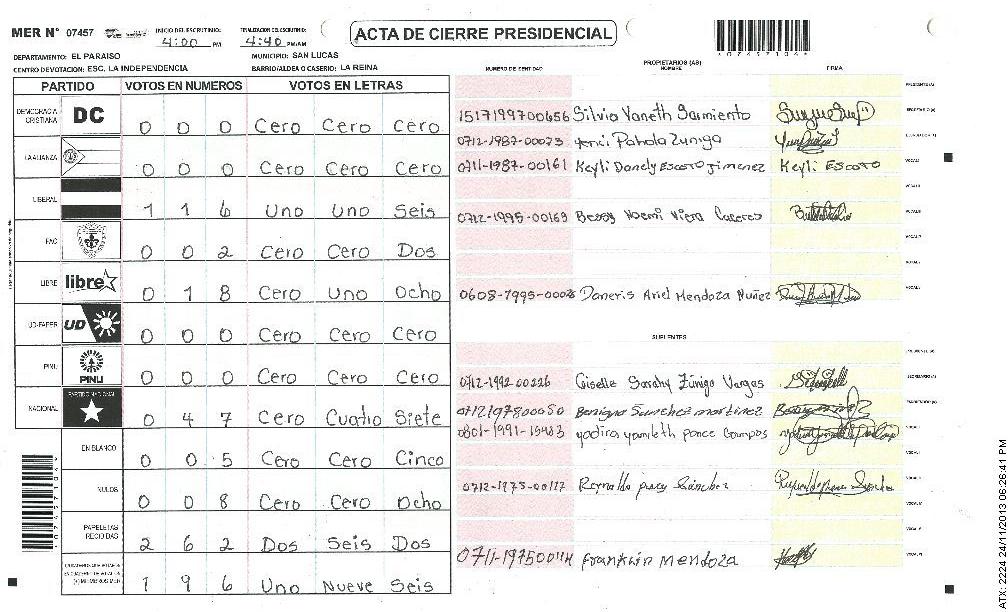 MER N° 07457 INICIO DEL ESCRUTINIO: 4:00 PM FINALIZACION DEL ESCRUTINIO: 4:40 PM/AM ACTA DE CIERRE PRESIDENCIAL
DEPARTAMENTO: EL PARAISO MUNICIPIO: SAN LUCAS
CENTRO DE VOTACION: ESC. LA INDEPENDENCIA BARRIO/ALDEA O CASERIO: LA REINA
PARTIDO VOTOS EN NUMEROS VOTOS EN LETRAS
DEMOCRACIA CRISTIANA DC 0 0 0 Cero Cero Cero
LA ALIANZA 0 0 0 Cero Cero Cero
LIBERAL 1 1 6 Uno Uno Seis
PAC 0 0 2 Cero Cero Dos
LIBRE libre 0 1 8 Cero Uno Ocho
UD-FAPER UD 0 0 0 Cero Cero Cero
PINU PINU 0 0 0 Cero Cero Cero
NACIONAL PARTIDO NACIONAL 0 4 7 Cero Cuatro Siete
EN BLANCO 0 0 5 Cero Cero Cinco
NULOS 0 0 8 Cero Cero Ocho
PAPELETAS RECIBIDAS 2 6 2 Dos Seis Dos
(+) MIEMBROS MER 1 9 6 Uno Nueve Seis
NUMERO DE IDENTIDAD PROPIETARIOS (AS) NOMBRE FIRMA
1517199700656 Silvia Yaneth Sarmiento
0712-1987-00073 Yenci Pahola Zuniga
0711-1987-00161 Keyli Danely Escoto Jimenez Keyli Escoto
0712-1995-00169 Bessy Noemi Viera Caseres
Daneris Ariel Mendoza Nuñez
SUPLENTES
0712-1992-00226 Giselle Sarahy Zúniga Vargas
0712197800050 Benigna Sanchez martinez
0801-1991-15483 yadira yamileth ponce Campos
0712-1975-00117 Reynaldo perez Sánchez
franklin mendoza
ATX: 2224 24/11/2013 06:26:41 PM